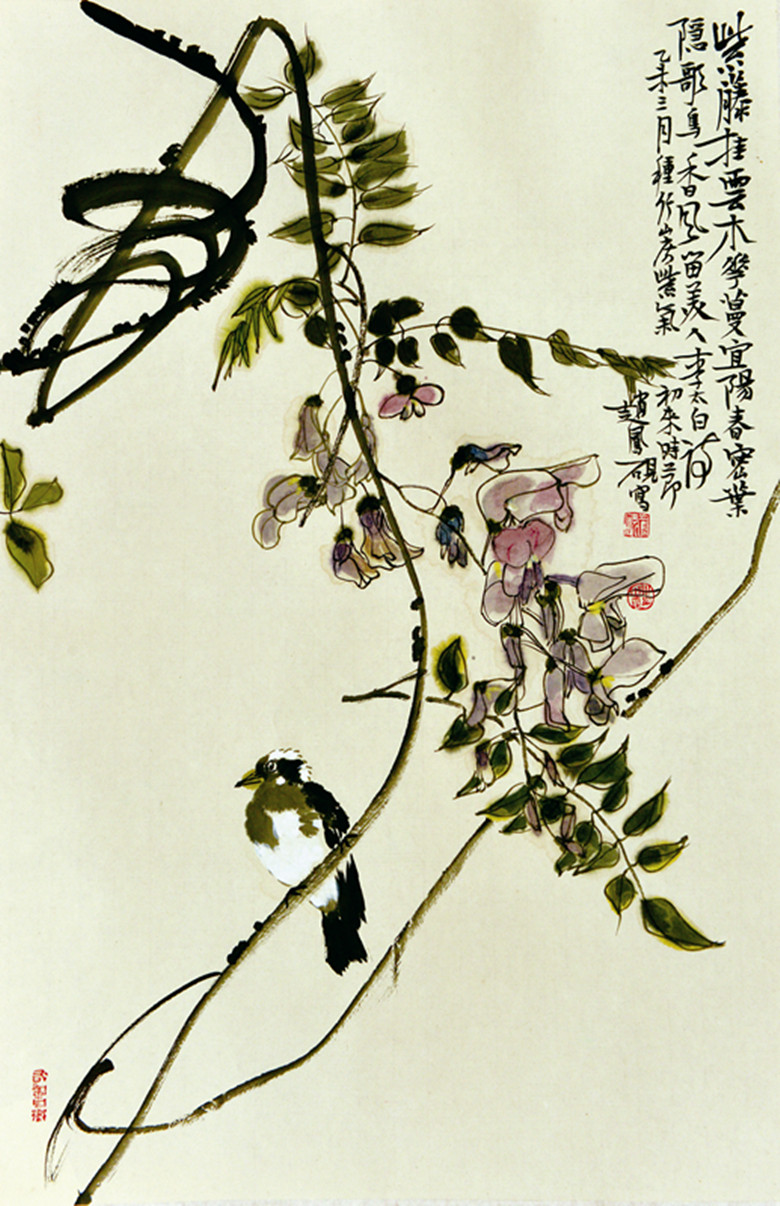 紫藤挂雲木華蔓宜陽春密葉
隱歌鳥香風留美人李太白詩
乙未三月種竹山房紫氣初來時節
趙鳳硯寫